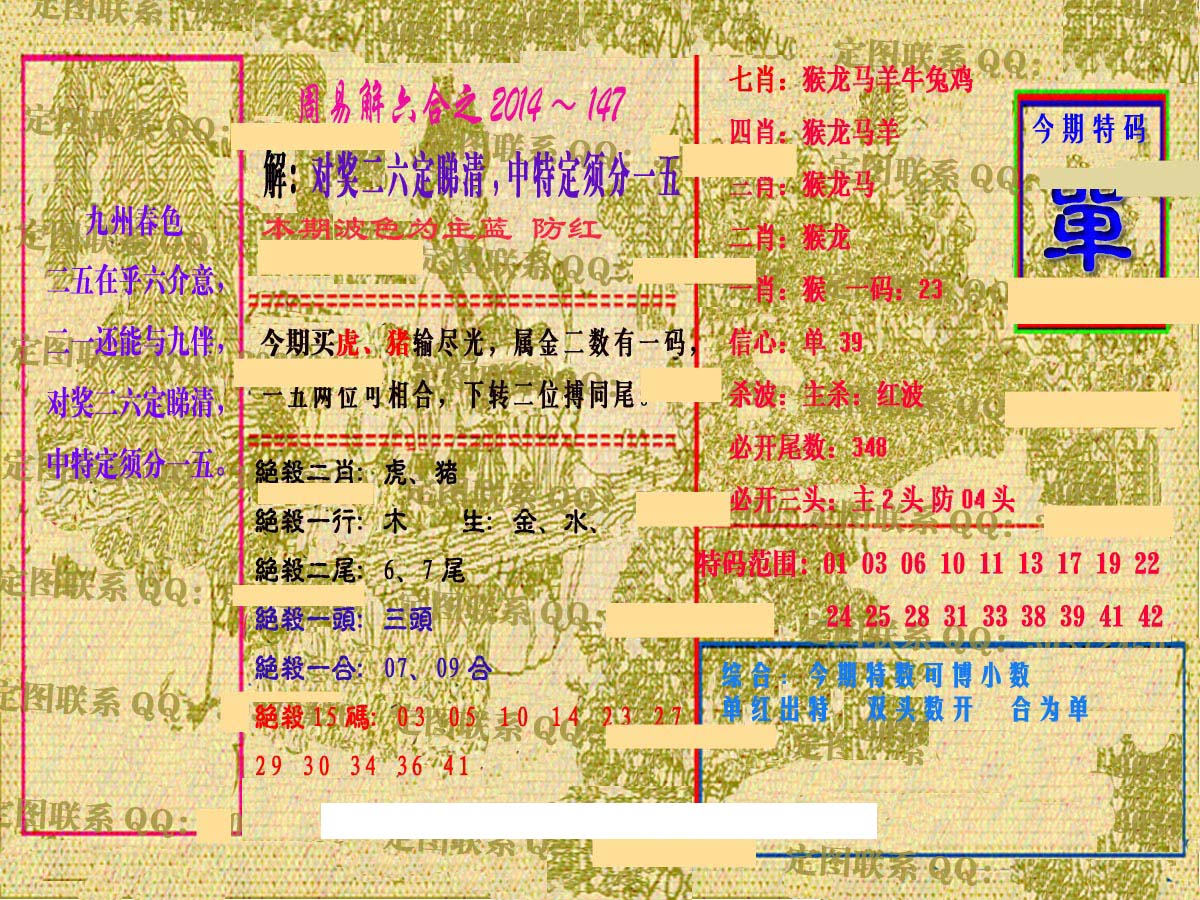 九州春色
二五在乎六介意，
二一还能与九伴，
对奖二六定睇清，
中特定须分一五。
周易解六合之2014～147
解：对奖二六定睇清，中特定须分一五
本期波色为主蓝 防红
今期买虎、猪输尽光，属金二数有一码，
一五两位可相合，下转二位搏同尾。
絕殺二肖：虎、猪
絕殺一行：木 生：金、水、
絕殺二尾：6、7尾
絕殺一頭：三頭
絕殺一合：07、09合
絕殺15碼：03 05 10 14 23 27
29 30 34 36 41
七肖：猴龙马羊牛兔鸡
四肖：猴龙马羊
三肖：猴龙马
二肖：猴龙
一肖：猴 一码：23
信心：单 39
杀波：主杀：红波
必开尾数：348
必开三头：主2头防04头
今期特码
單
特码范围：01 03 06 10 11 13 17 19 22
24 25 28 31 33 38 39 41 42
综合：今期特数可博小数
单红出特 双头数开 合为单
定图联系QQ：